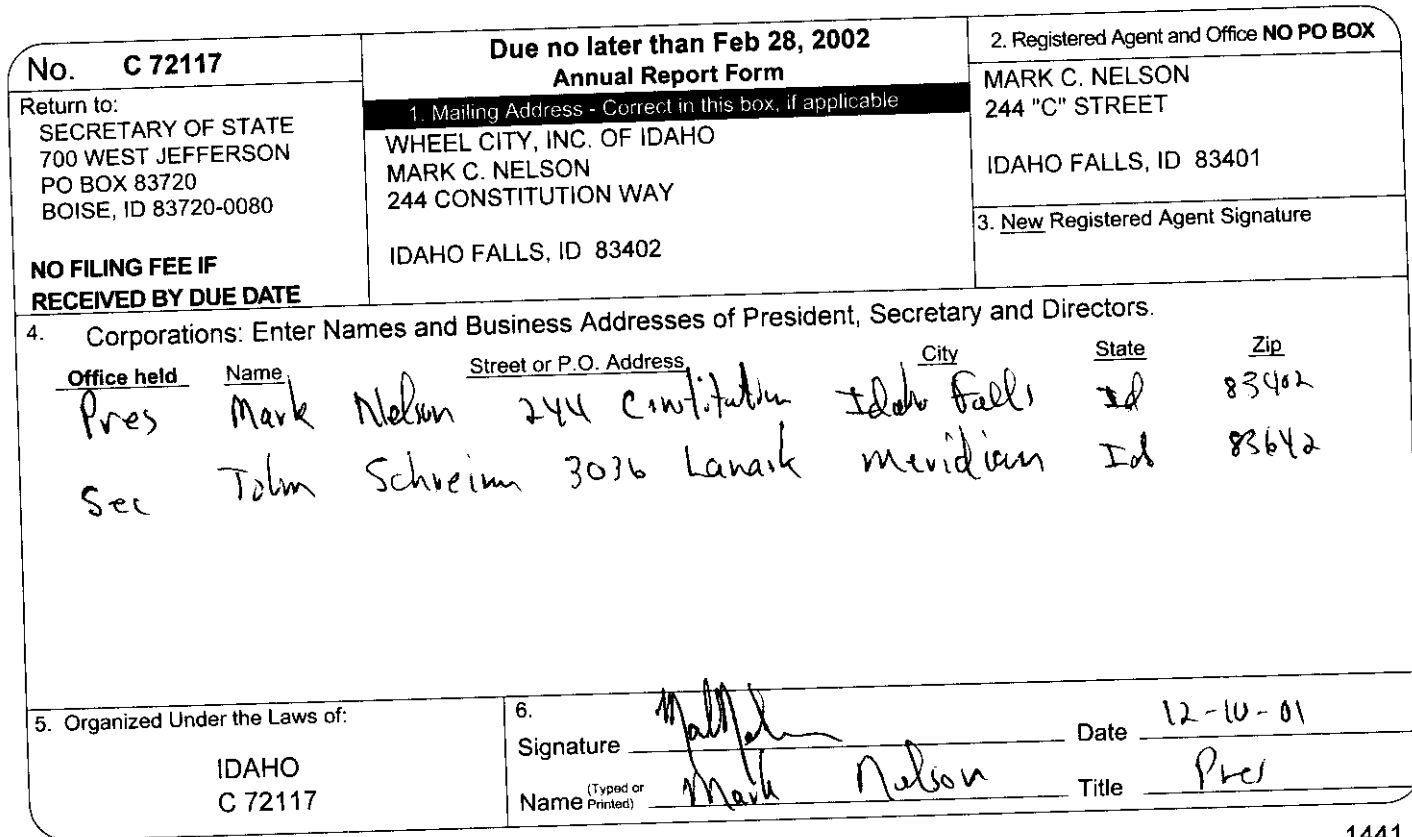 No. C 72117
Return to:
SECRETARY OF STATE
700 WEST JEFFERSON
PO BOX 83720
BOISE, ID 83720-0080
NO FILING FEE IF
RECEIVED BY DUE DATE
Due no later than Feb 28, 2002
Annual Report Form
1. Mailing Address - Correct in this box, if applicable
WHEEL CITY, INC. OF IDAHO
MARK C. NELSON
244 CONSTITUTION WAY
IDAHO FALLS, ID 83402
2. Registered Agent and Office NO PO BOX
MARK C. NELSON
244 "C" STREET
IDAHO FALLS, ID 83401
3. New Registered Agent Signature
4. Corporations: Enter Names and Business Addresses of President, Secretary and Directors.
Office held Name Street or P.O. Address City State Zip
Pres Mark Nelson 244 Constitution Idaho Falls Id 83402
Sec 3036 Lanark Meridian Id 83642
5. Organized Under the Laws of:
IDAHO
C 72117
6.
Signature Date 12-10-01
Name (Typed or Printed) Mark Nelson Title Pres
1441